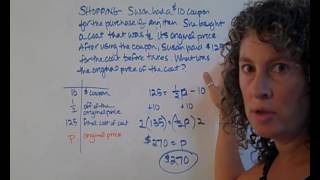 SHOPPING Susan had a $10 coupon
for the purchase of any item. She bought
a coat that was 1/2 its original price.
After using the coupon, Susan paid $125
for the coat before taxes. What was
the original price of the coat?
10 $ coupon
1/2 off of the original price
125 final cost of coat
P original price
125 = 1/2 P - 10
+10 +10
2(135) = (1/2 P) 2
$270 = P
$270